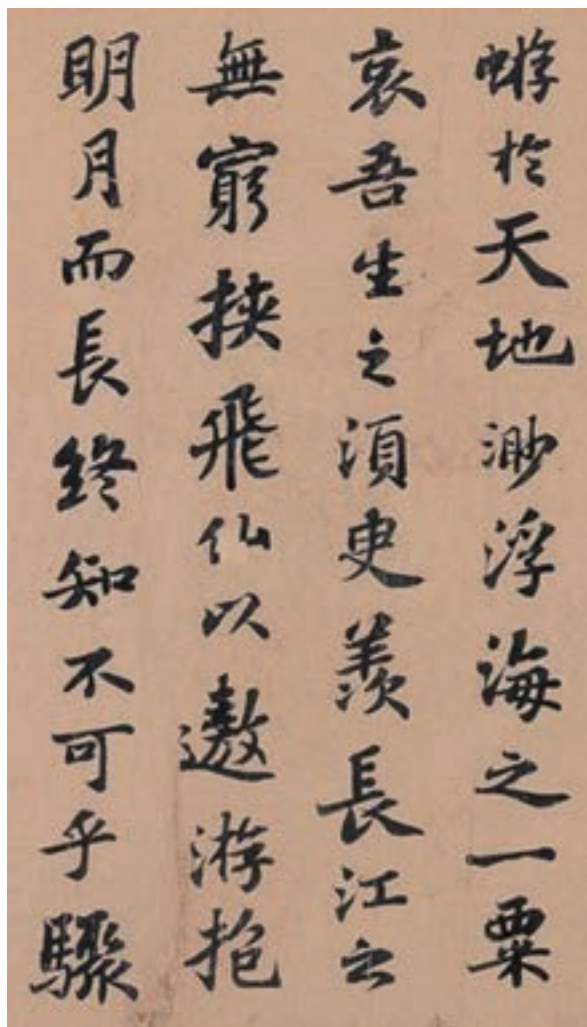 蝣於天地渺浮海之一粟
哀吾生之湏臾羨長江之
無窮挾飛仙以遨游抱
明月而長終知不可乎驟